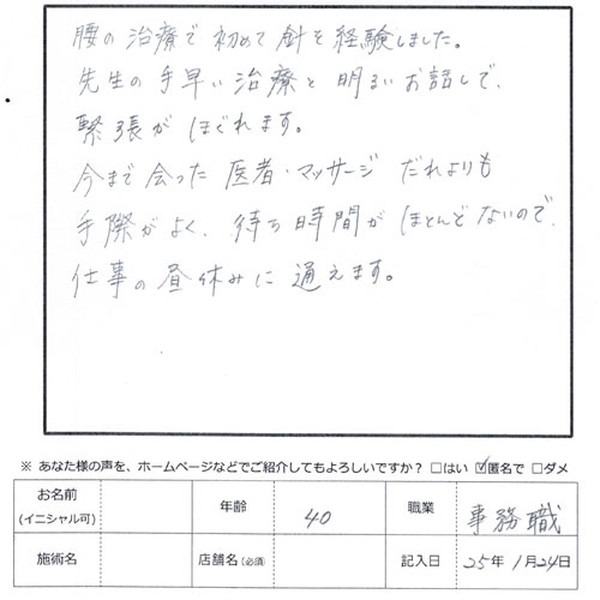 腰の治療で初めて針を経験しました。
先生の手早い治療と明るいお話しで、
緊張がほぐれます。
今まで会った医者・マッサージだれよりも
手際がよく、待ち時間がほとんどないので、
仕事の昼休みに通えます。
※ あなた様の声を、ホームページなどでご紹介してもよろしいですか？ □はい ☑匿名で □ダメ
お名前 (イニシャル可) 年齢 40 職業 事務職
施術名 店舗名（必須） 記入日 25年 1月24日